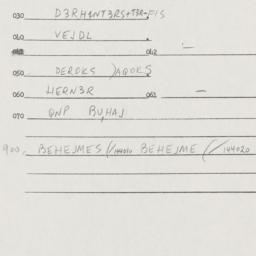 030 DЗRHANTЗRS+TЗR-FIS
040 VEJDL
042 —
050 DEROKS JAQOKS
060 HERNЗR 061 —
070 QNP BUHAJ
900. BEHEJMES //144010 BEHEJME //144020